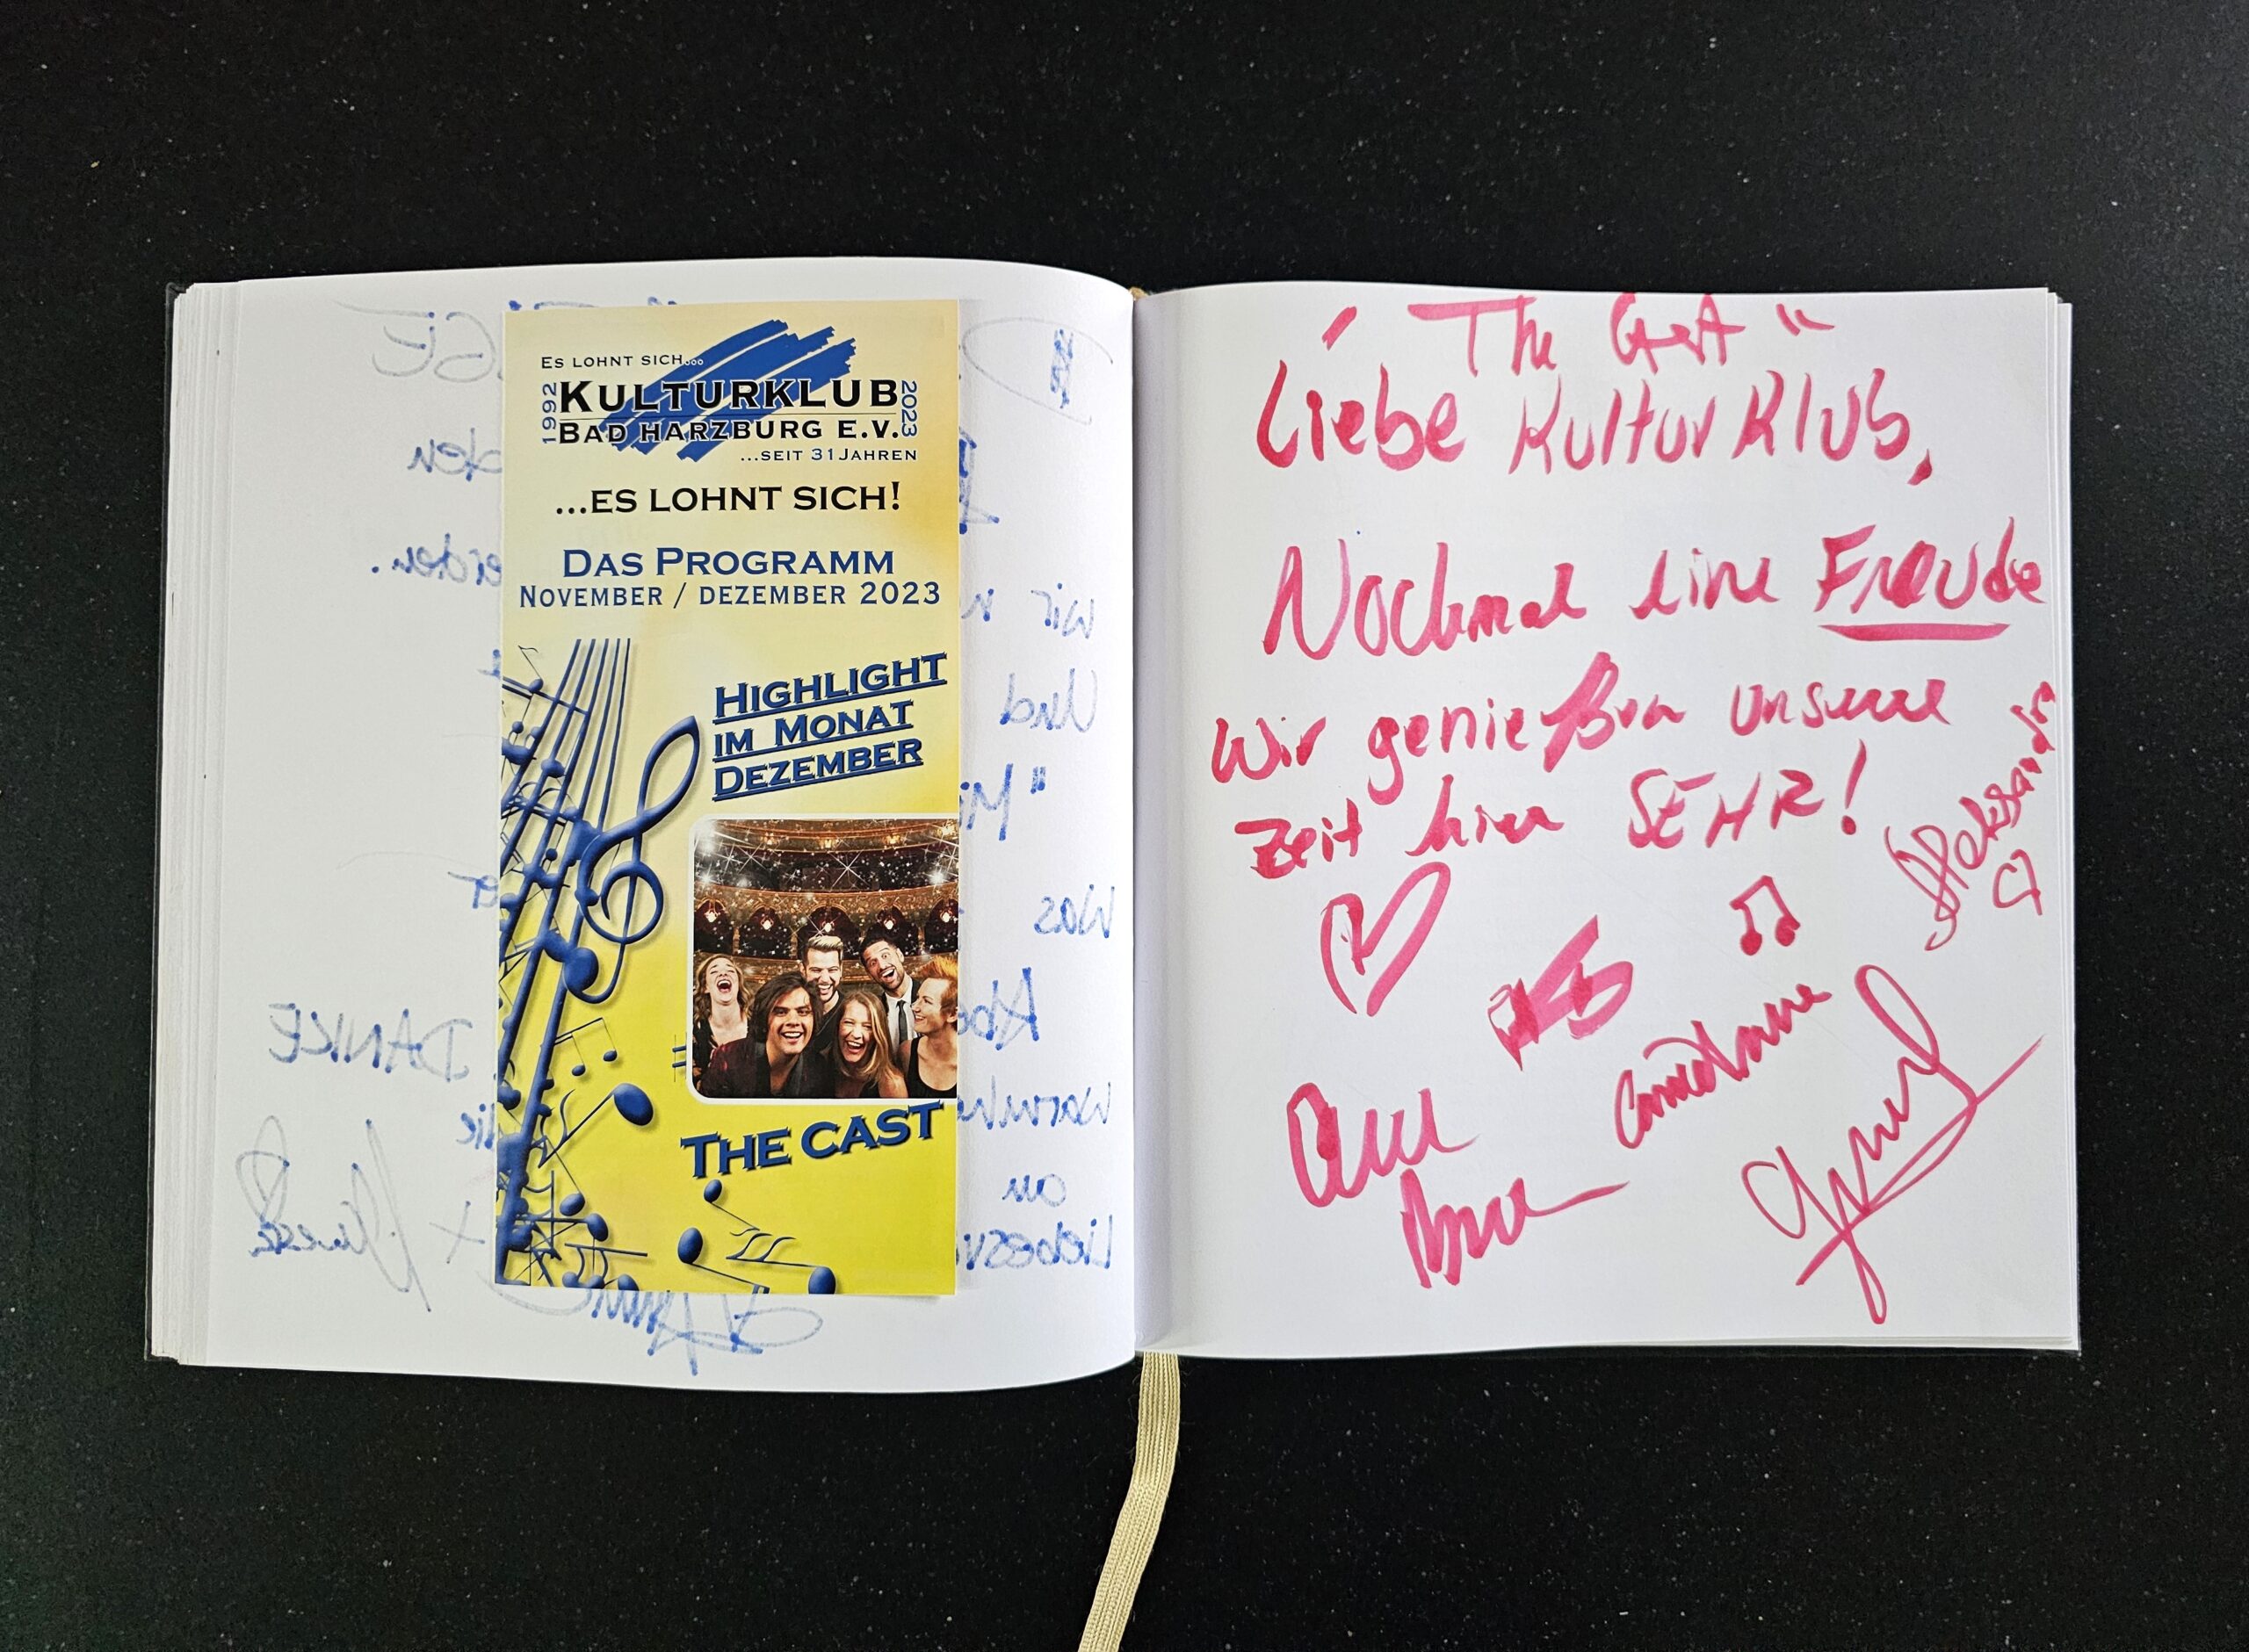 Es lohnt sich...
1992
Kulturklub
2023
Bad Harzburg e.V.
...seit 31 Jahren
...es lohnt sich!
Das Programm
November / Dezember 2023
Highlight
im Monat
Dezember
The Cast
den
erden.
Wir
Und
"Mi
Was
DANKE
an
"The Cast"
Liebe KulturKlub,
Nochmal eine Freude
Wir genießen unsere
Zeit hier SEHR!
Aleksandra